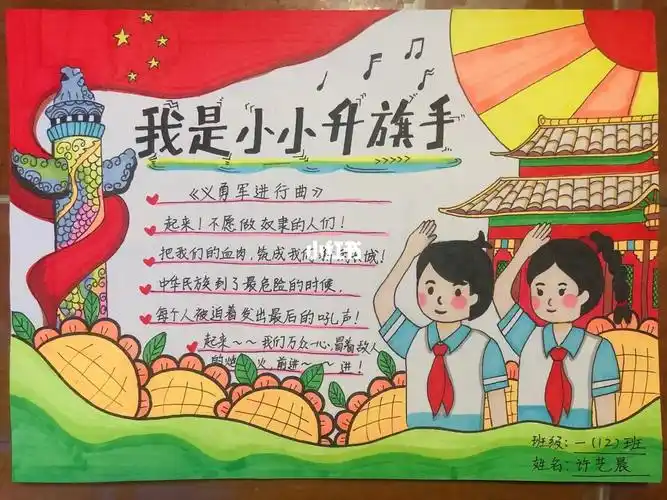 我是小小升旗手
《义勇军进行曲》
起来！不愿做奴隶的人们！
把我们的血肉，筑成我们 长城！
小红书
中华民族到了最危险的时候，
每个人被迫着发出最后的吼声！
起来～～我们万众一心，冒着敌人
的炮 火，前进～～ 进！
班级：一（12）班
姓名：许艺晨